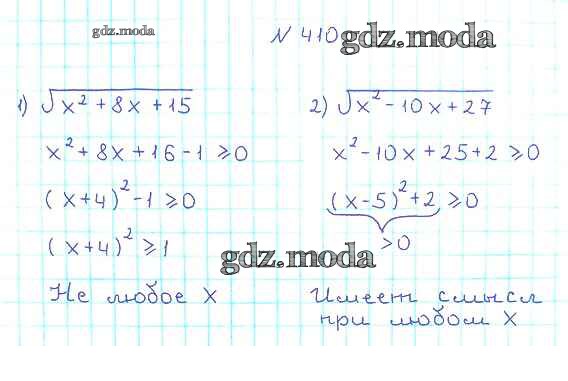 gdz.moda
№ 410 gdz.moda
1) √x² + 8x + 15
x² + 8x + 16 - 1 ⩾ 0
(x + 4)² - 1 ⩾ 0
(x + 4)² ⩾ 1
Не любое x
2) √x² - 10x + 27
x² - 10x + 25 + 2 ⩾ 0
(x - 5)² + 2 ⩾ 0
> 0
gdz.moda
Имеет смысл
при любом x